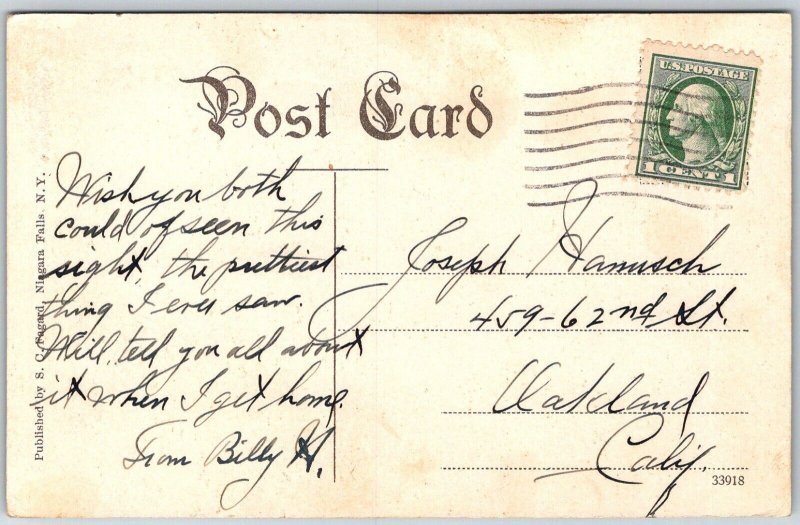 Post Card
U.S. POSTAGE
1 CENT 1
Wish you both
could of seen this
sight, the prettiest
thing I ever saw.
Will tell you all about
it when I get home.
From Billy H.
Joseph Hanusch
459-62nd St.
Oakland
Calif.
Published by S. C. Fagard, Niagara Falls. N. Y.
33918